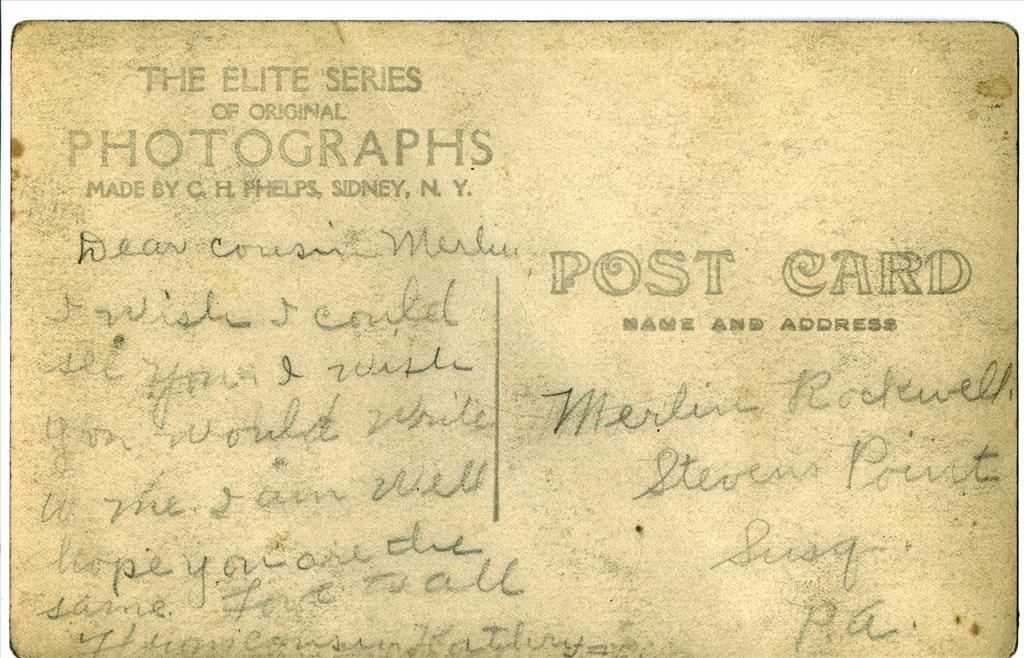 THE ELITE SERIES
OF ORIGINAL
PHOTOGRAPHS
MADE BY C. H. PHELPS, SIDNEY, N. Y.
Dear cousin Merlin,
I wish I could
see you. I wish
you would write
to me. I am well
hope you are the
same. Love to all
cousin Kathryn
POST CARD
NAME AND ADDRESS
Merlin Rockwell.
Stevens Point
Susq.
P.A.